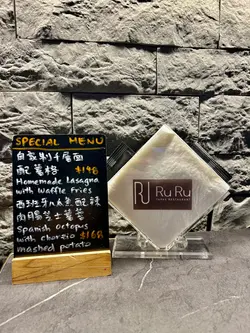 SPECIAL MENU
自家制千層面
配薯格 $148
Homemade lasagna
with waffle fries
西班牙八爪魚配辣
肉腸芝士薯蓉
Spanish octopus
with chorzio $168
mashed potato
RJ RuRu